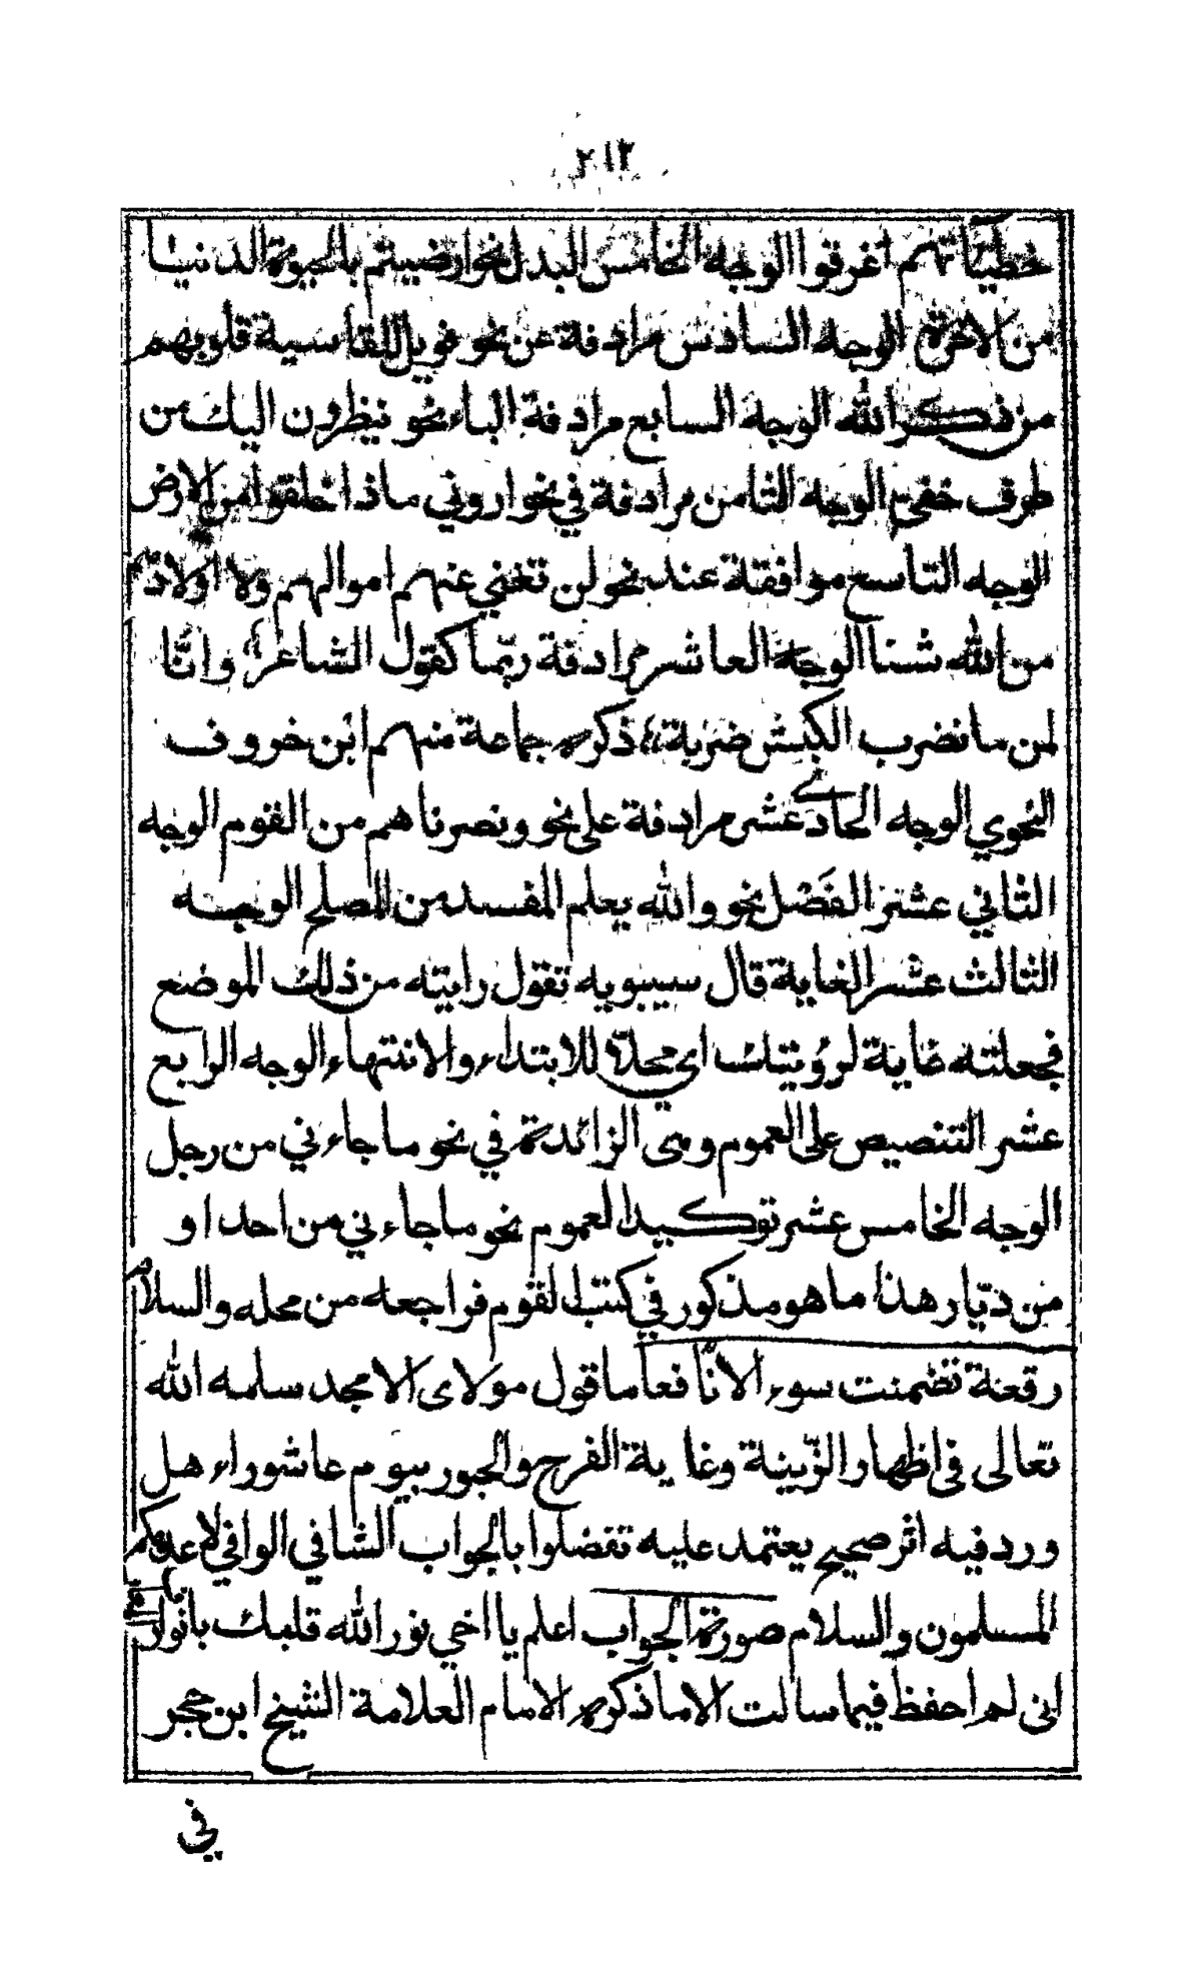 ٢١٢
خطيئاتهم اغرقوا الوجه الخامس البدل نحو ارضيتم بالحيوة الدنيا
من الاخرة الوجه السادس مرادفة عن نحو فويل للقاسية قلوبهم
من ذكر الله الوجه السابع مرادفة الباء نحو ينظرون اليك من
طرف خفي الوجه الثامن مرادفة في نحو اروني ماذا خلقوا من الارض
الوجه التاسع موافقة عند نحو لن تغني عنهم اموالهم ولا اولادهم
من الله شيئا الوجه العاشر مرادفة ربّما كقول الشاعر وانّا
لمن ما نضرب الكبش ضربة ذكره جماعة منهم ابن خروف
النحوي الوجه الحادي عشر مرادفة على نحو ونصرناهم من القوم الوجه
الثاني عشر الفَصْل نحو والله يعلم المفسد من المصلح الوجه
الثالث عشر الغاية قال سيبويه تقول رايته من ذلك الموضع
فجعلته غاية لرؤيتك اي محلّا للابتداء والانتهاء الوجه الرابع
عشر التنصيص على العموم وهي الزائدة في نحو ما جاءني من رجل
الوجه الخامس عشر توكيد العموم نحو ما جاءني من احد او
من ديّار هذا ما هو مذكور في كتب القوم فراجعه من محله والسلام
رقعة تضمنت سوء الانًا فعا ما قول مولاى الامجد سلمه الله
تعالى فى اظهار الزّينة وغاية الفرح والحبور بيوم عاشوراء هل
ورد فيه اثر صحيح يعتمد عليه تفضلوا بالجواب الشافي الوافي لا عدمكم
المسلمون والسلام صورة الجواب اعلم يا اخي نور الله قلبك بانوار
انى لم احفظ فيما سالت الا ما ذكره الامام العلامة الشيخ ابن حجر
في